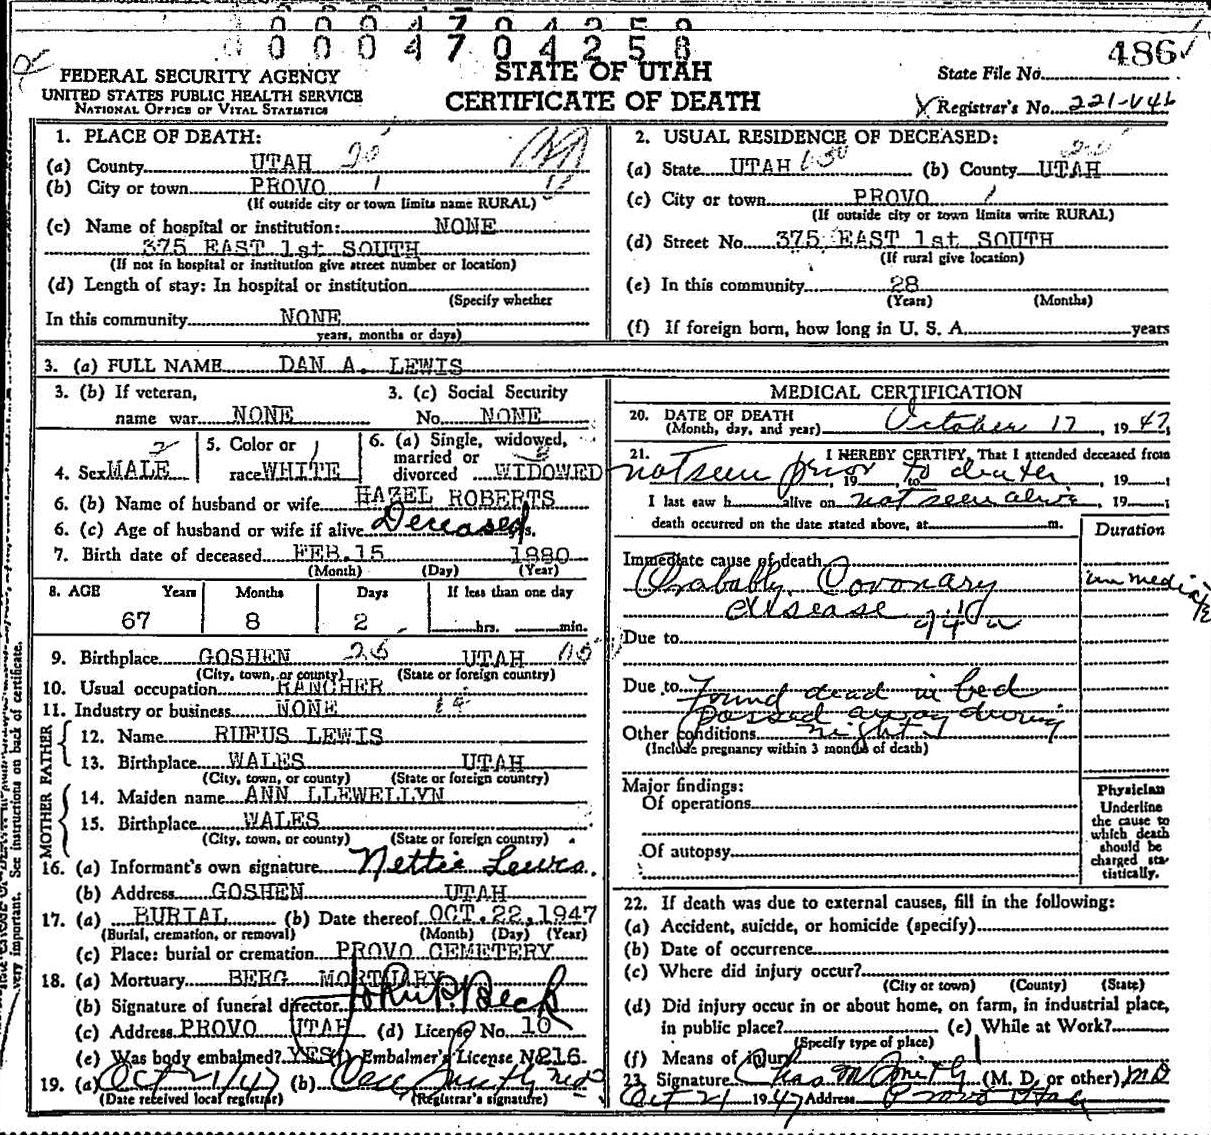 0004704258
0004704258
486
FEDERAL SECURITY AGENCY
UNITED STATES PUBLIC HEALTH SERVICE
NATIONAL OFFICE OF VITAL STATISTICS
STATE OF UTAH
CERTIFICATE OF DEATH
State File No.
Registrar's No. 221-V46
1. PLACE OF DEATH:
(a) County UTAH
(b) City or town PROVO 1
(If outside city or town limits name RURAL)
(c) Name of hospital or institution: NONE
375 EAST 1st SOUTH
(If not in hospital or institution give street number or location)
(d) Length of stay: In hospital or institution
(Specify whether
In this community NONE
years, months or days)
2. USUAL RESIDENCE OF DECEASED:
(a) State UTAH (b) County UTAH
(c) City or town PROVO 1
(If outside city or town limits write RURAL)
(d) Street No. 375 EAST 1st SOUTH
(If rural give location)
(e) In this community 28
(Years) (Months)
(f) If foreign born, how long in U. S. A. years
3. (a) FULL NAME DAN A. LEWIS
3. (b) If veteran, name war NONE
3. (c) Social Security No. NONE
4. Sex MALE
5. Color or race WHITE
6. (a) Single, widowed, married or divorced WIDOWED
6. (b) Name of husband or wife HAZEL ROBERTS
6. (c) Age of husband or wife if alive Deceased yrs.
7. Birth date of deceased FEB. 15 1880
(Month) (Day) (Year)
8. AGE Years Months Days If less than one day
67 8 2 hrs. min.
9. Birthplace GOSHEN UTAH
(City, town, or county) (State or foreign country)
10. Usual occupation RANCHER
11. Industry or business NONE
FATHER
12. Name RUFUS LEWIS
13. Birthplace WALES UTAH
(City, town, or county) (State or foreign country)
MOTHER
14. Maiden name ANN LLEWELLYN
15. Birthplace WALES
(City, town, or county) (State or foreign country)
16. (a) Informant's own signature Nettie Lewis.
(b) Address GOSHEN UTAH
17. (a) BURIAL (b) Date thereof OCT. 22, 1947
(Burial, cremation, or removal) (Month) (Day) (Year)
(c) Place: burial or cremation PROVO CEMETERY
18. (a) Mortuary BERG MORTUARY
(b) Signature of funeral director
(c) Address PROVO UTAH (d) License No. 10
(e) Was body embalmed? YES (f) Embalmer's License No. 216
19. (a) Oct 21/47 (b)
(Date received local registrar) (Registrar's signature)
MEDICAL CERTIFICATION
20. DATE OF DEATH
(Month, day, and year) October 17, 1947
21. I HEREBY CERTIFY, That I attended deceased from
not seen prior, 19 , to death, 19 ;
I last saw h alive on not seen alive, 19 ;
death occurred on the date stated above, at m.
Duration
Immediate cause of death
Probably Coronary immediate
disease 94a
Due to
Due to Found dead in bed
passed away during
Other conditions night
(Include pregnancy within 3 months of death)
Major findings:
Of operations
Of autopsy
Physician
Underline
the cause to
which death
should be
charged sta-
tistically.
22. If death was due to external causes, fill in the following:
(a) Accident, suicide, or homicide (specify)
(b) Date of occurrence
(c) Where did injury occur?
(City or town) (County) (State)
(d) Did injury occur in or about home, on farm, in industrial place,
in public place? (e) While at Work?
(Specify type of place)
(f) Means of injury
23. Signature Chas M Smith (M. D. or other) MD
Oct 21 1947 Address Provo Utah
very important. See instructions on back of certificate.